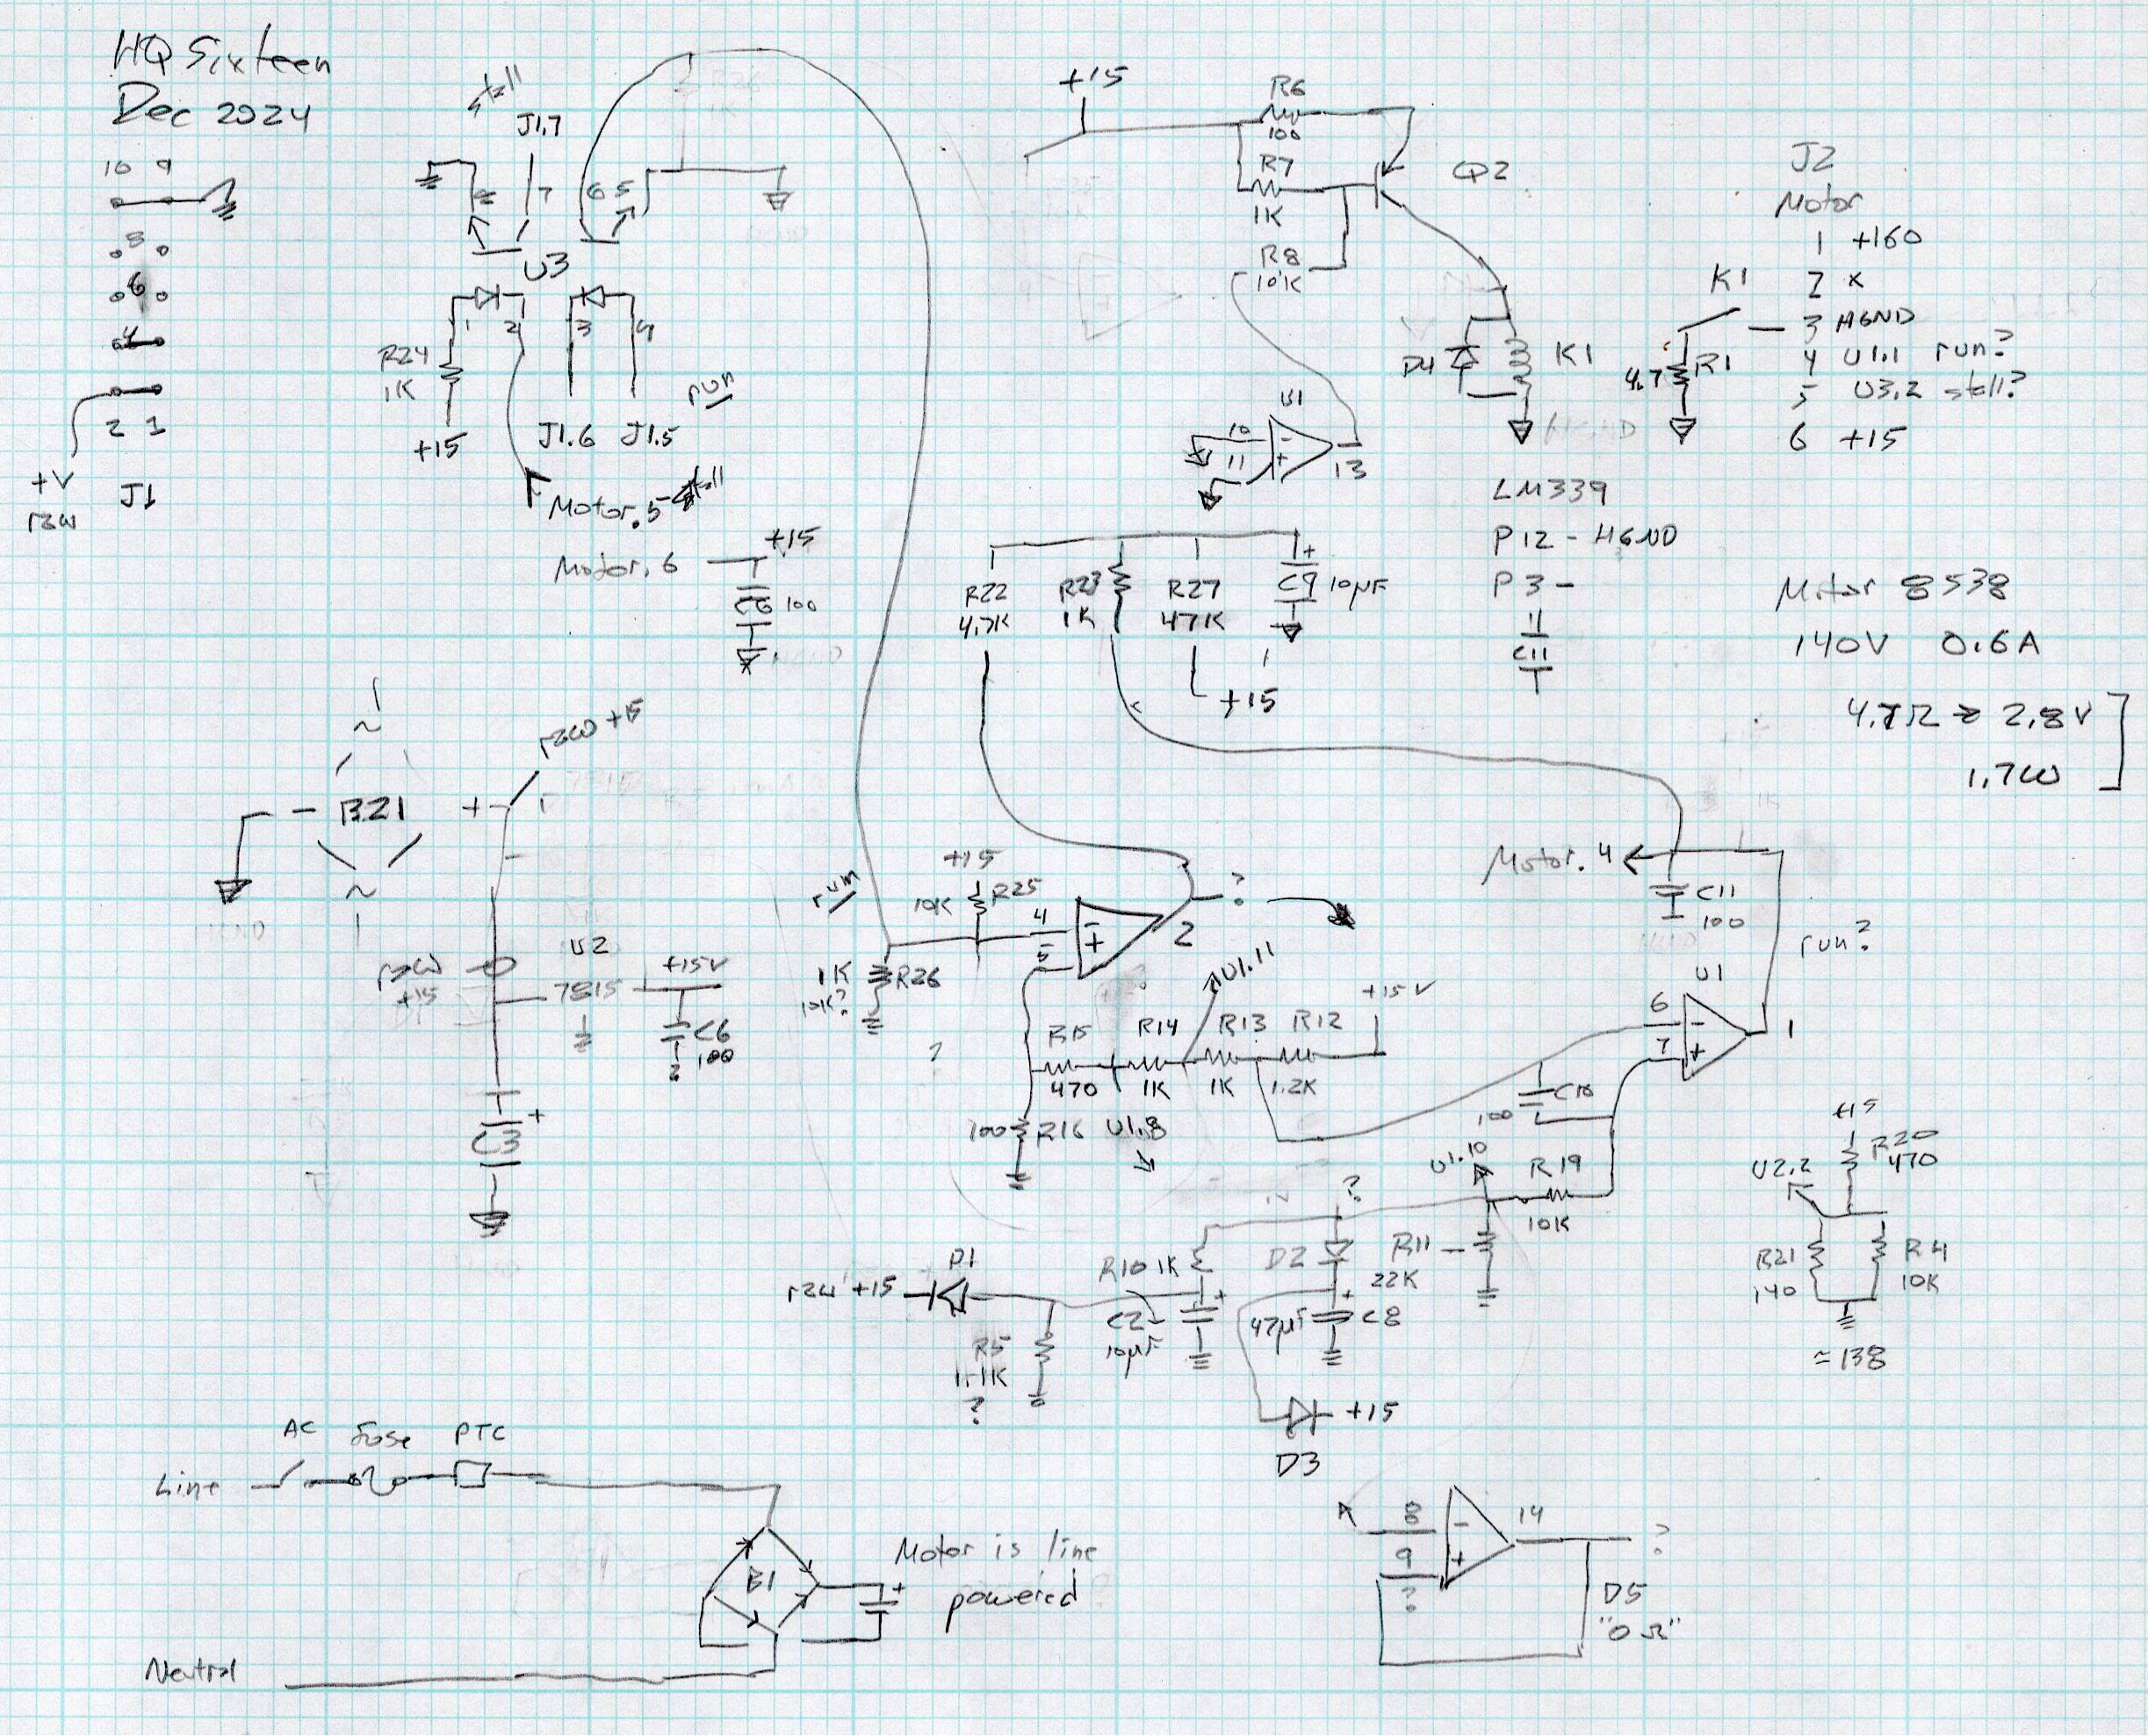 HQ Sixteen
Dec 2024
10 9
8
6
4
2 1
+V
raw
J1
stall
J1.7
8 7 6 5
U3
1 2 3 4
R24
1K
+15
J1.6 J1.5
run
Motor.5 stall
Motor.6
+15
C6 100
+15
R6
100
R7
1K
R8
10K
Q2
D4
K1
U1
10
11
- +
13
J2
Motor
1 +160
2 x
3 HGND
4 U1.1 run?
5 U3.2 stall?
6 +15
K1
4.7 R1
LM339
P12 - HGND
P3 -
C11
Motor 8538
140V 0.6A
4.7Ω → 2.8V
1.7W
R22
4.7K
R23
1K
R27
47K
+
C9 10µF
+15
~
- BZ1 +
~
raw +15
raw
+15
U2
7815
+15V
C6
100
?
C3
+
run
+15
10K R25
4
5
- +
2
?
1K R26
10K?
?
U1.11
+15V
R15 R14 R13 R12
470 1K 1K 1.2K
100 R16 U1.8
Motor.4
C11
100
run?
U1
6
7
- +
1
C10
100
U1.10
R19
10K
?
+15
R20
470
U2.2
R21
140
R4
10K
≈138
D1
raw +15
R5
1.1K
?
R10 1K
+
C2
10µF
D2
+
47µF C8
R11
22K
+15
D3
AC Fuse PTC
Line
B1
+
Motor is line
powered
Neutral
8
9
?
- +
14
?
D5
"0Ω"